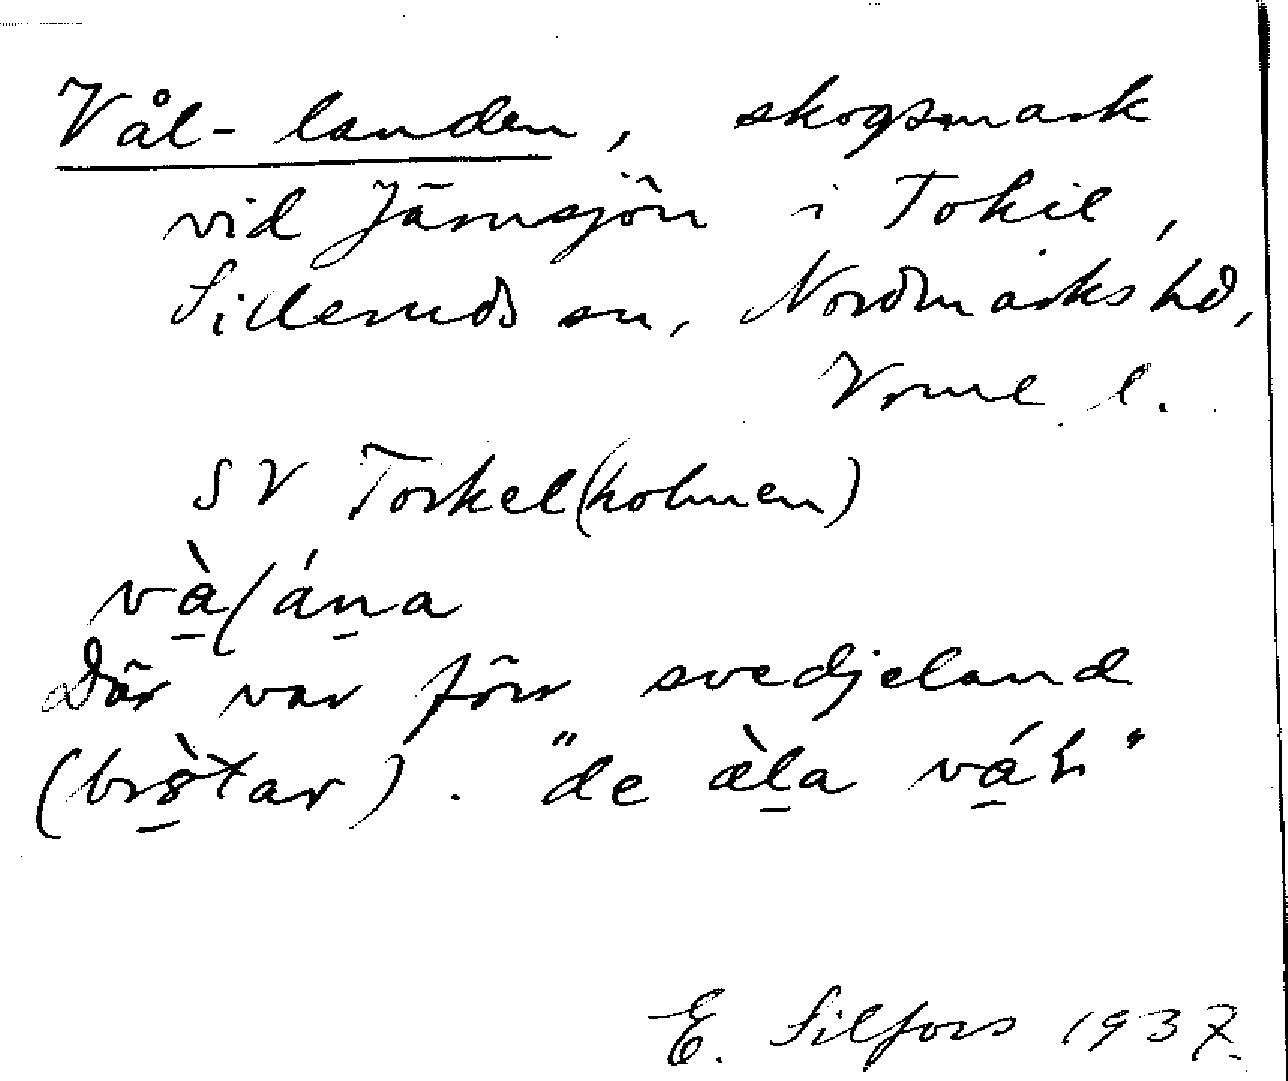 Vål-landen, skogsmark
vid Järnsjön i Tokil,
Silleruds sn, Nordmarks hd,
Vrml l.
SV Torkel(holmen)
Där var förr svedjeland
E. Silfors 1937.